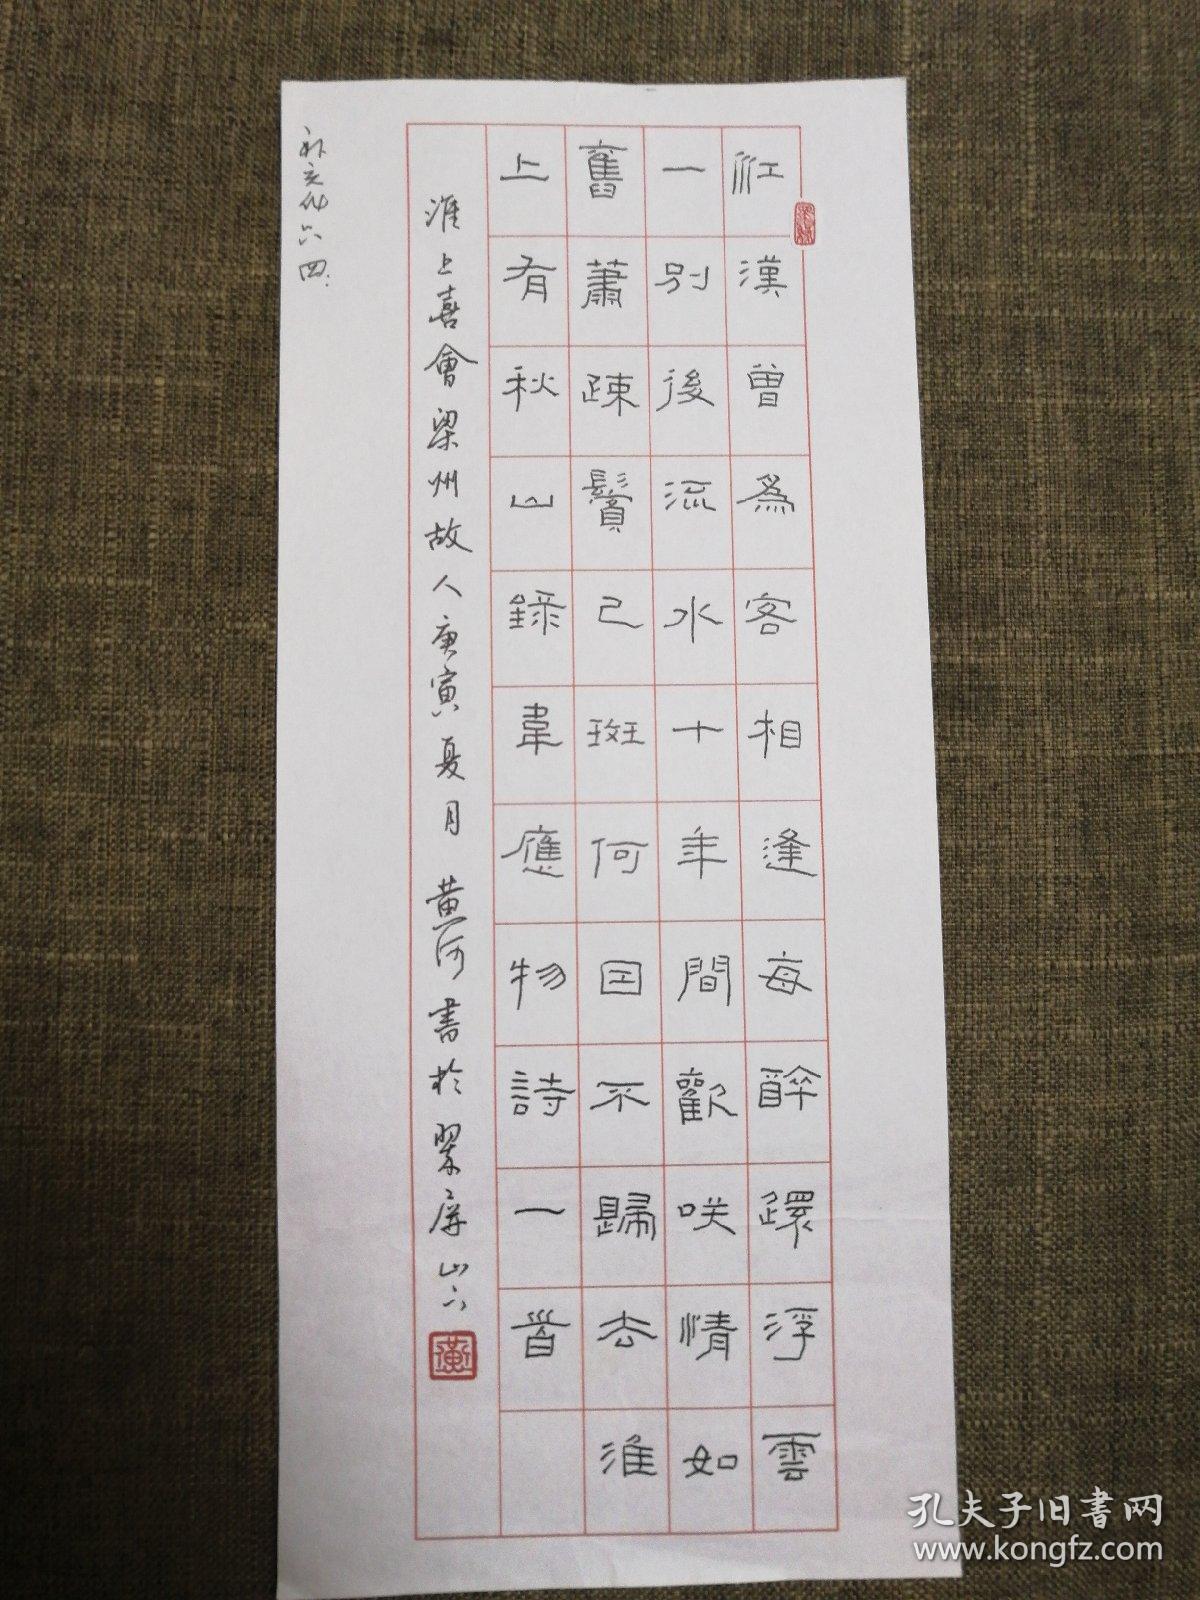 江漢曾爲客相逢每醉還浮雲
一別後流水十年間歡咲情如
舊蕭疎鬢已斑何因不歸去淮
上有秋山錄韋應物詩一首
淮上喜會梁州故人庚寅夏月 黄河書於翠屏山下
孔夫子旧書网
www.kongfz.com